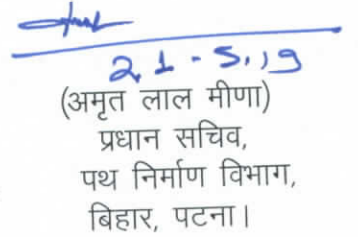 21-5-19
(अमृत लाल मीणा)
प्रधान सचिव,
पथ निर्माण विभाग,
बिहार, पटना।